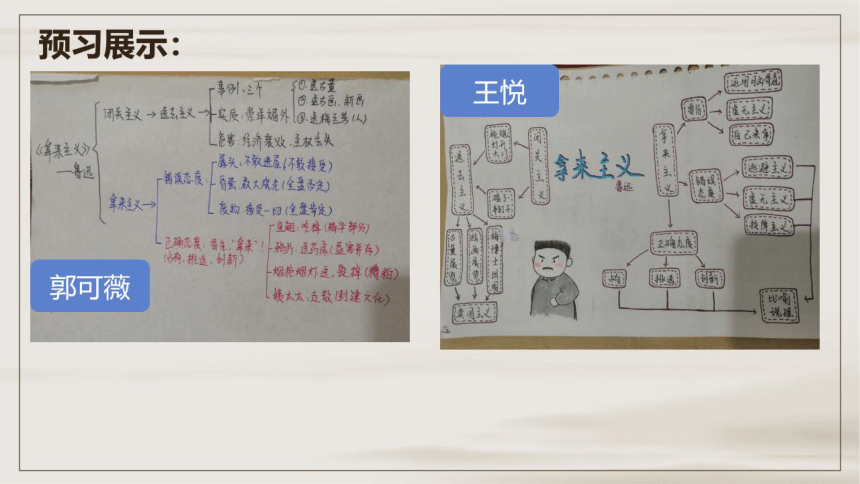 预习展示：
《拿来主义》
——鲁迅
闭关主义→送去主义→
事例：三个
①送古董
②送古画、新画
③送梅兰芳(人)
实质：崇洋媚外
危害：经济衰败、主权丢失
拿来主义→
错误态度：
孱头：不敢进屋(不敢接受)
昏蛋：放大火光(全盘否定)
废物：接受一切(全盘肯定)
正确态度：首先，"拿来"！
(占有，挑选，创新)
鱼翅：吃掉(精华部分)
鸦片：送药房(益害并存)
烟枪烟灯：送、毁掉(糟粕)
姨太太：走散(封建文化)
郭可薇
王悦
拿来主义
鲁迅
闭关主义
送去主义
古董展览
梅博士出国
拿来主义
要旨
运用脑髓
自己来拿
错误态度
逃避主义
虚无主义
投降主义
正确态度
占有
挑选
创新
比喻说理